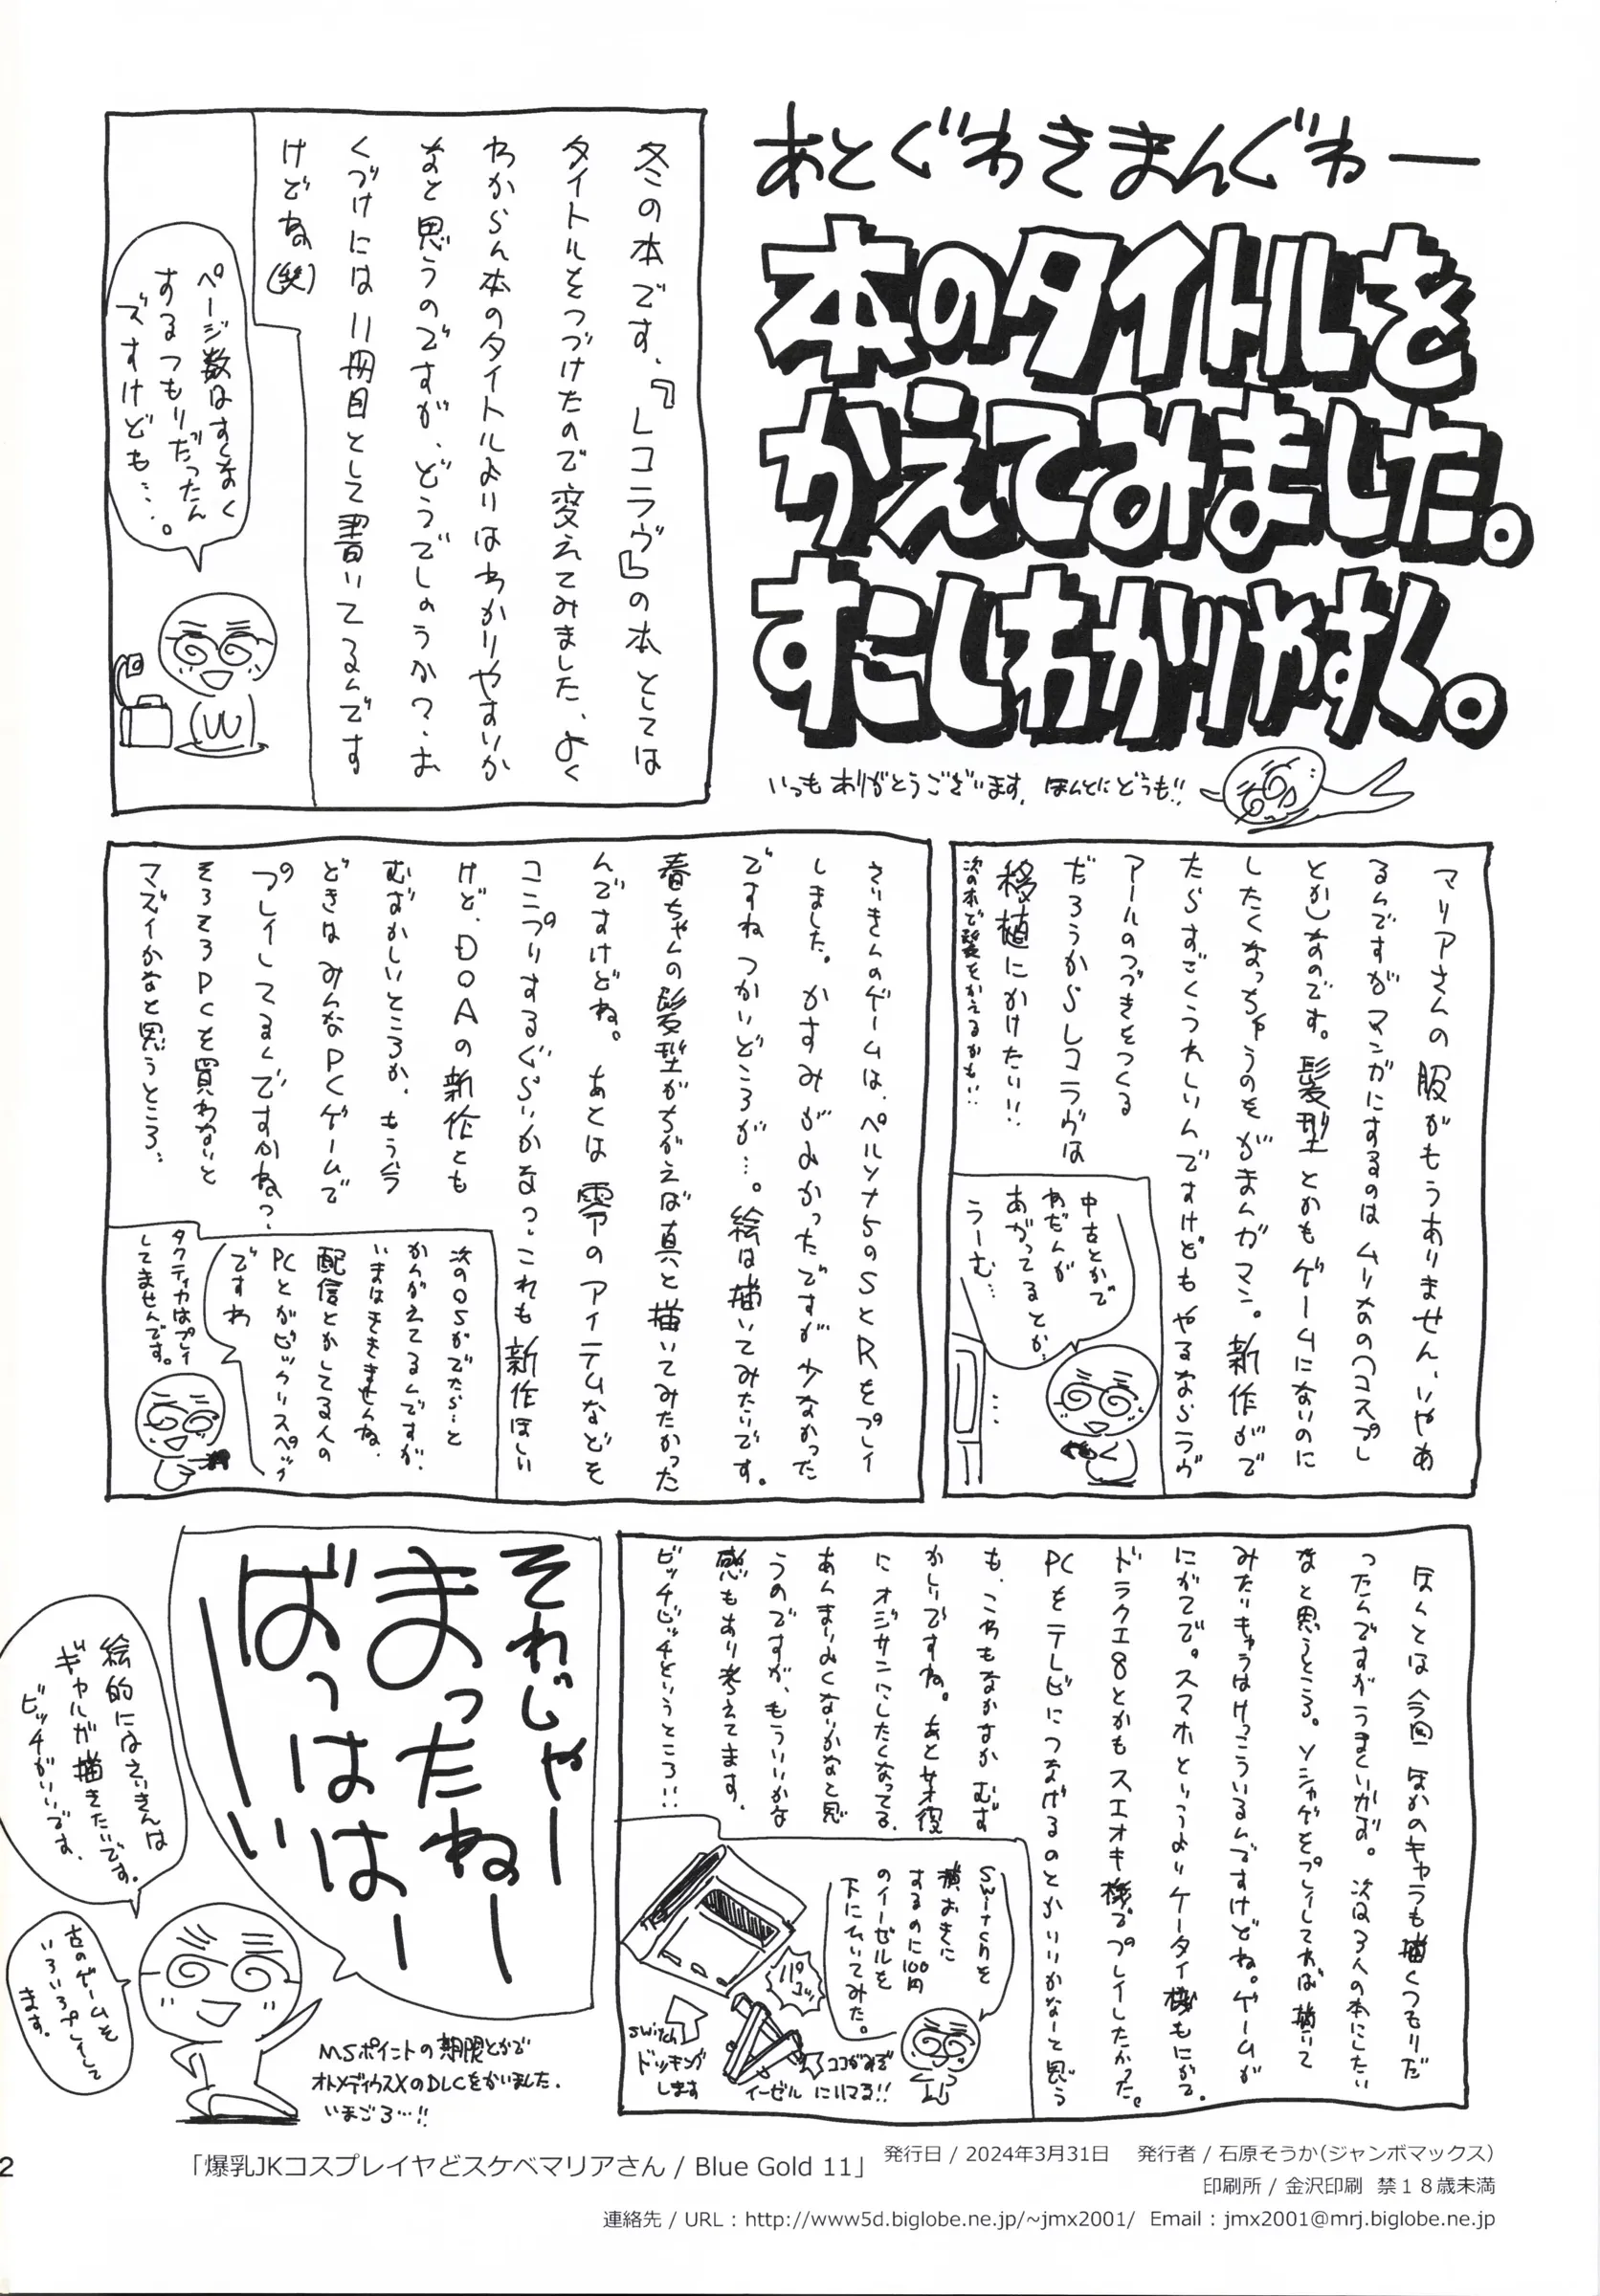 あとぐわきまんぐわー
本のタイトルを
かえてみました。
すこしわかりやすく。
いつもありがとうございます。ほんとにどうも!!
冬の本です。『レコラヴ』の本としては
タイトルをつづけたので変えてみました、よく
わからん本のタイトルよりはわかりやすいか
なと思うのですが、どうでしょうか?お
くづけには11冊目として書いてるんです
けどね(笑)
ページ数はすくなく
するつもりだったん
ズすけども…。
マリアさんの服がもうありません、いやあ
るんですがマンガにするのはムリめの(コスプレ
とか)なのです。髪型とかもゲームにないのに
したくなっちゃうのをがまんガマン。新作がで
たらすごくうれしいんですけどもやるならラヴ
アールのつづきをつくる
だろうからレコラヴは
移植にかけたい!!
次の本で髪をかえるかも!!
中古とかで
ねだんが
あがってるとか、
うーむ…
さいきんのゲームは、ペルソナ5のSとRをプレイ
しました。かすみがよかったですが少なかった
ですね つかいどころが…。絵は描いてみたいです。
春ちゃんの髪型がちがえば真と描いてみたかった
んですけどね。あとは零のアイテムなどを
コンプリするぐらいかなっ、これも新作ほしい
けど、DOAの新作とも
むずかしいところか、もう今
どきはみんなPCゲームで
プレイしてるんですかねっ、
そろそろPCを買わないと
マズイかなと思うところ、
次のOSがでたら…と
かんがえてるんですが、
いまはまだきませんね、
配信とかしてる人の
PCとかビックリスペック
ですわ
タクティカはプレイ
してませんです。
ほんとは今回ほかのキャラも描くつもりだ
ったんですがうまくいかず。次は3人の本にしたい
なと思うところ。ソシャゲをプレイしてれば描いて
みたいキャラはけっこういるんですけどね。ゲームが
にがてで。スマホというよりケータイ機もにがて。
ドラクエ8とかもスエオキ機でプレイしたかった。
PCをテレビにつなげるのとかいいかなーと思う
も、これもなかなかむず
かしいですね。あと竿役
にオジサンにしたくなってる、
あんまりよくないかなと思
うのですが、もういいかな
感もあり考えてます。
ビッチビッチというところ!!
Switchを
横おきに
するのに100円
のイーゼルを
下にひいてみた。
110
コッ
switch
ドッキング
します
イーゼル
ココがみぞ
にいてる!!
それじゃー
まったねー
ばっはは
ーいはー
絵的にはさいきんは
ギャルが描きたいです。
ビッチがいいです、
古のゲームを
いろいろプレイして
ます。
MSポイントの期限とかで
オトメディウスXのDLCをかいました.
いまごろ…!!
2
「爆乳JKコスプレイヤどスケベマリアさん / Blue Gold 11」
発行日 / 2024年3月31日　発行者 / 石原そうか(ジャンボマックス)
印刷所 / 金沢印刷　禁１８歳未満
連絡先 / URL : http://www5d.biglobe.ne.jp/~jmx2001/　Email : jmx2001@mrj.biglobe.ne.jp